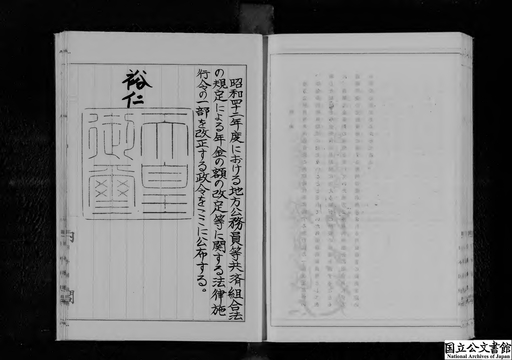 昭和四十二年度における地方公務員等共済組合法
の規定による年金の額の改定等に関する法律施
行令の一部を改正する政令をここに公布する。
裕仁
天皇
御璽
国立公文書館
National Archives of Japan